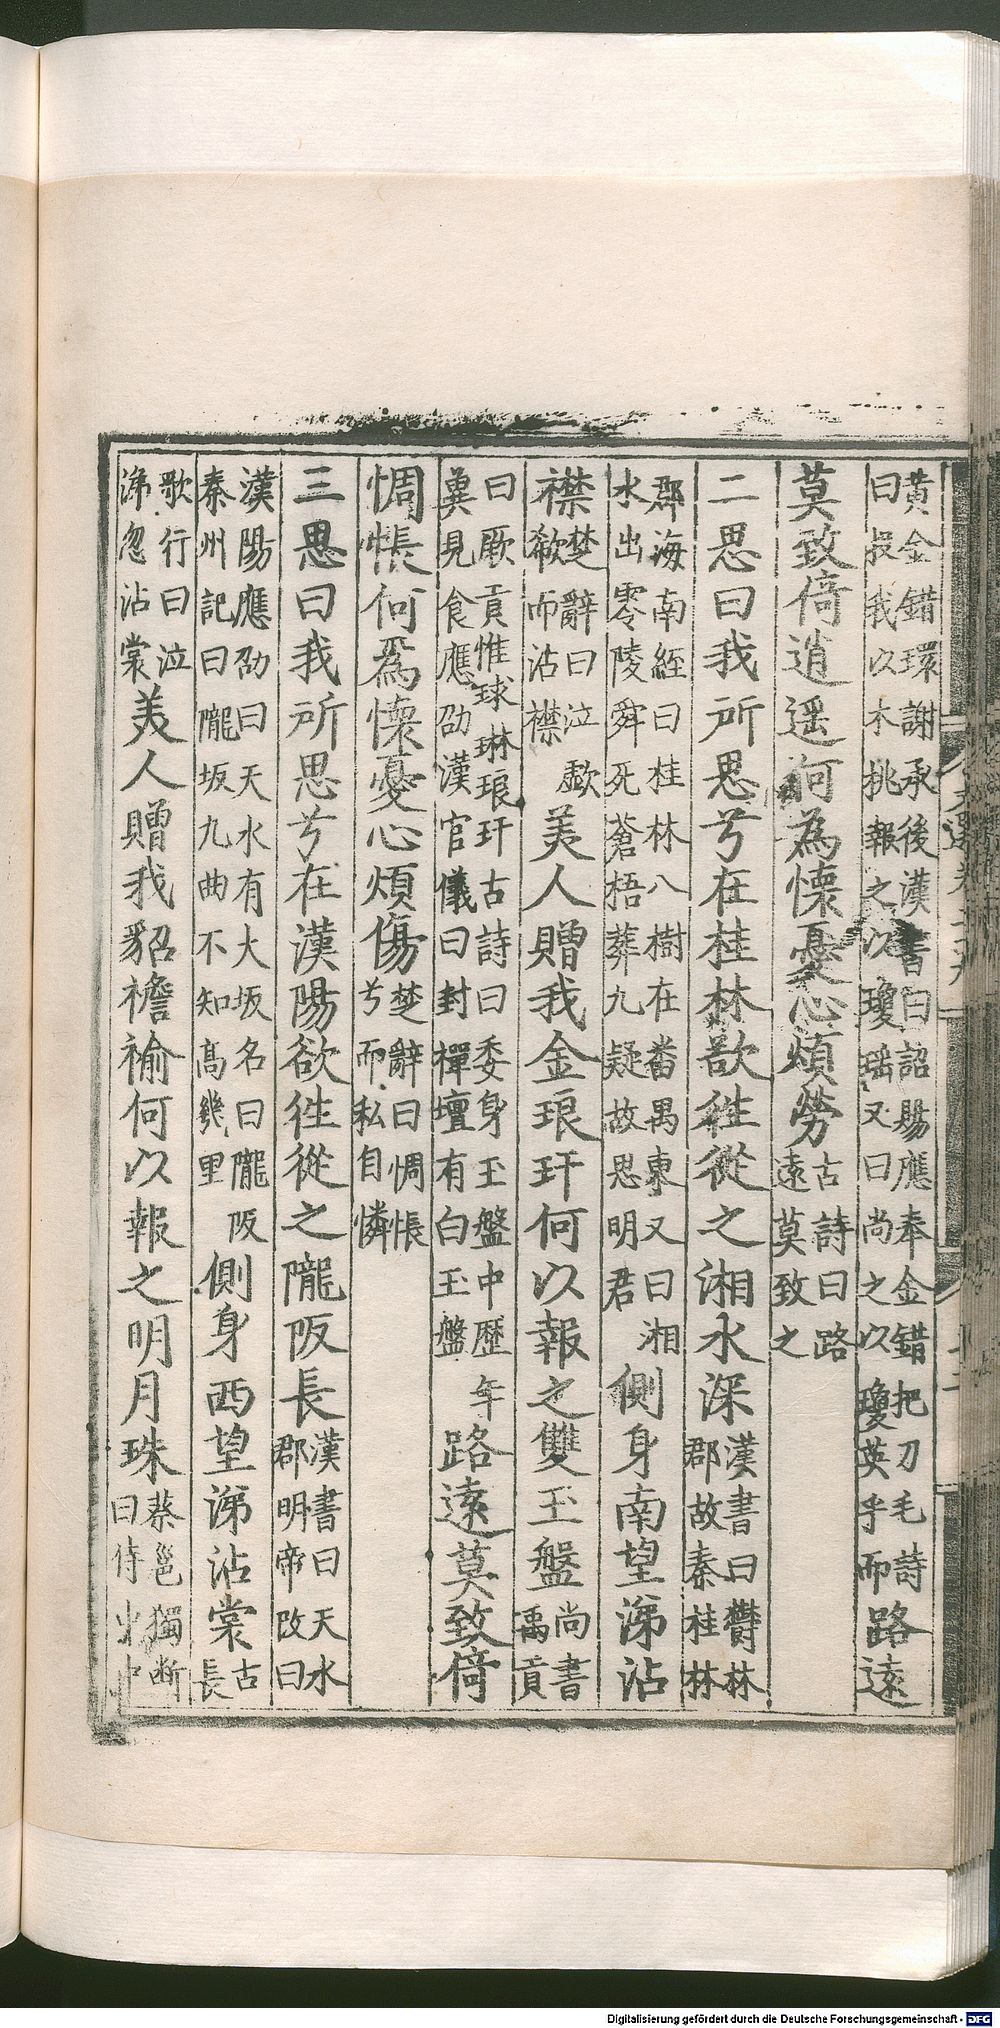 黄金錯環謝承後漢書曰詔賜應奉金錯把刀毛詩
曰投我以木桃報之以瓊瑶又曰尚之以瓊英乎而路遠
莫致倚逍遥何為懷憂心煩勞古詩曰路
遠莫致之
二思曰我所思兮在桂林欲徃從之湘水深漢書曰欝林
郡故秦桂林
郡海南經曰桂林八樹在畨禺東又曰湘
水出零陵舜死蒼梧葬九疑故思明君側身南望涕沾
襟楚辭曰泣歔
欷而沾襟美人贈我金琅玕何以報之雙玉盤尚書
禹貢
曰厥貢惟球琳琅玕古詩曰委身玉盤中歷年
奠見食應劭漢官儀曰封禪壇有白玉盤路遠莫致倚
惆悵何爲懷憂心煩傷楚辭曰惆悵
兮而私自憐
三思曰我所思兮在漢陽欲徃從之隴阪長漢書曰天水
郡明帝改曰
漢陽應劭曰天水有大坂名曰隴阪
秦州記曰隴坂九曲不知髙幾里側身西望涕沾裳古
長
歌行曰泣
涕忽沾裳美人贈我貂襜褕何以報之明月珠蔡邕獨斷
曰侍中
Digitalisierung gefördert durch die Deutsche Forschungsgemeinschaft - DFG